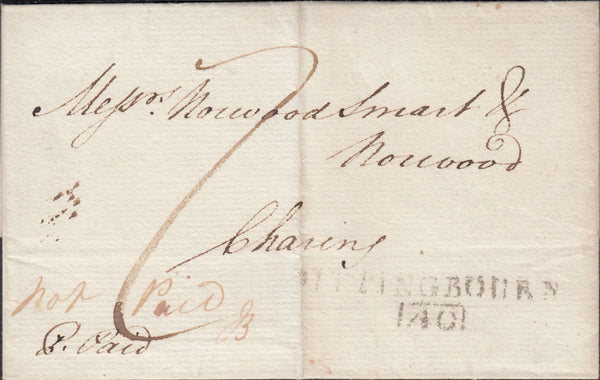 Messrs. Norwood Smart &
Norwood
Charing
Not Paid
B
P. Paid
SITTINGBOURN
40
7